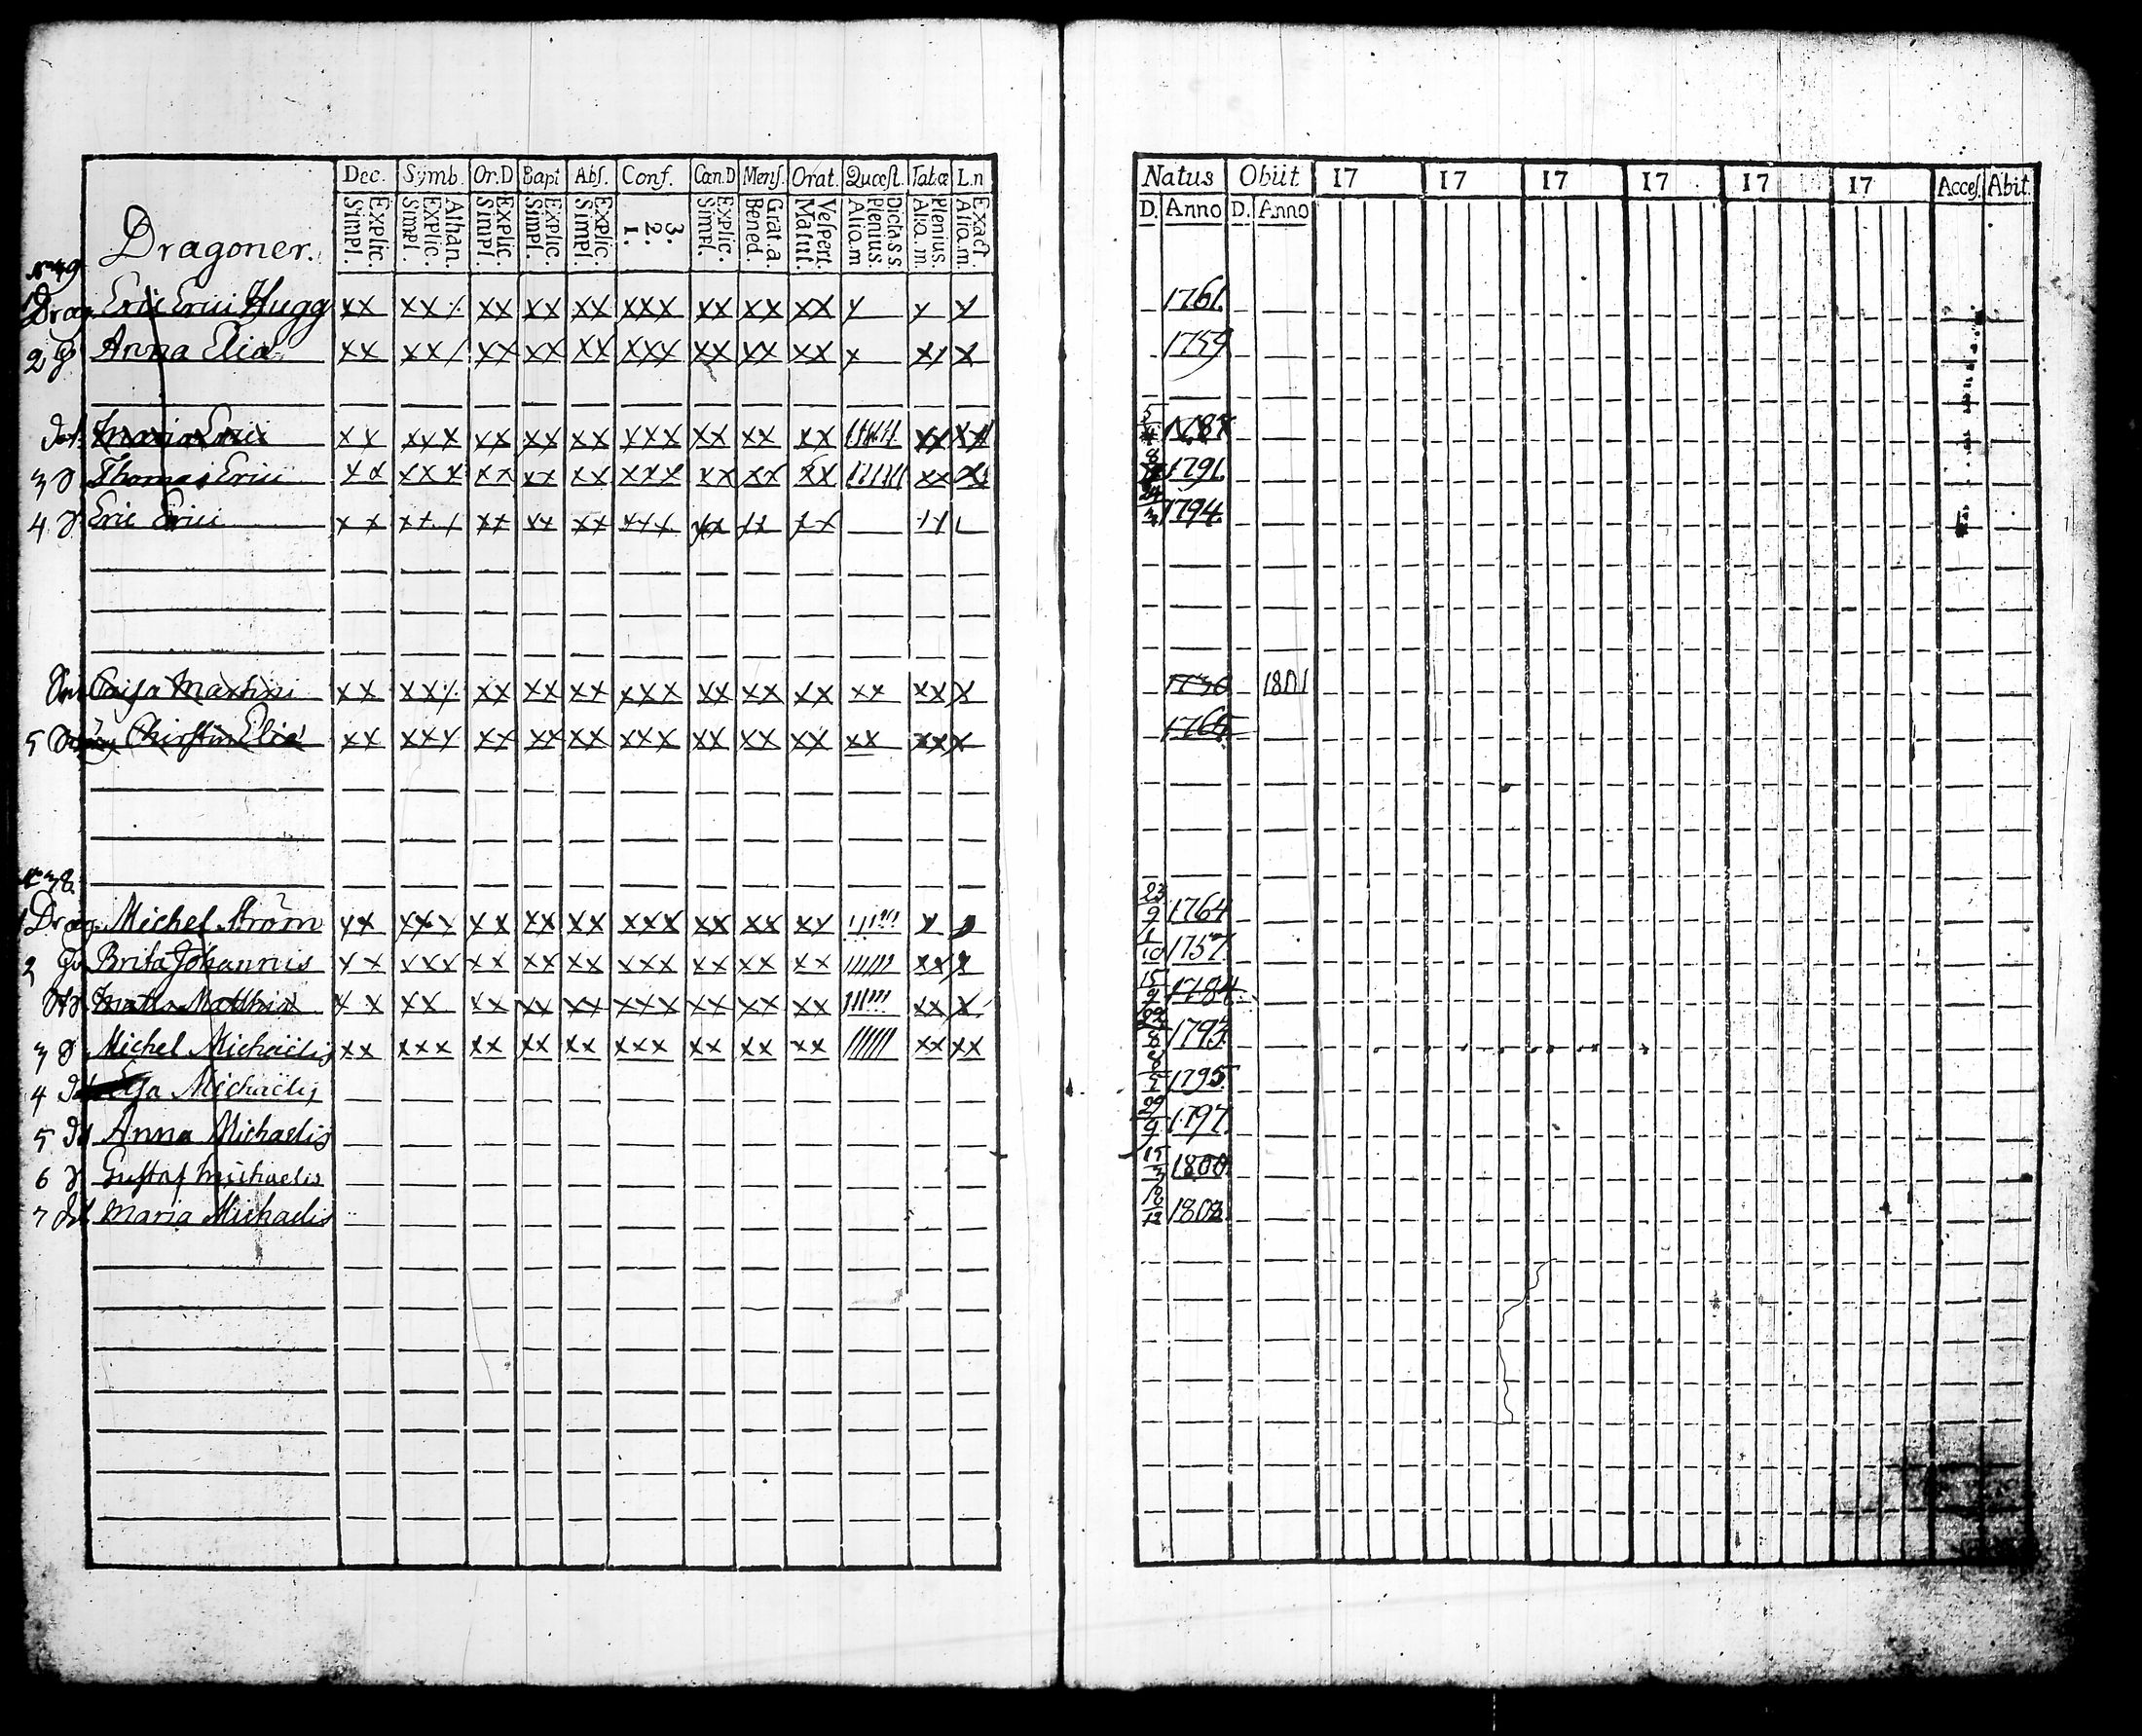 Dec. Symb. Or.D Bapt Abs. Conf. Can.D Mens. Orat. Quæst. Tab.œ L.n
Simpl. Explic. Simpl. Explic. Athan. Simpl. Explic. Simpl. Explic. Simpl. Explic. 1. 2. 3. Simpl. Explic. Bened. Grat.a. Matut. Vespert. Aliq.m Plenius. Dicta.s.s. Aliq.m. Plenius. Aliq.m. Exact.
Natus Obiit 17 17 17 17 17 17 Acces. Abit.
D. Anno D. Anno
Dragoner.
1 Drag. Eric Erici Hugg xx xx/. xx xx xx xxx xx xx xx x x x 1761.
2 Anna Eliæ xx xx/ xx xx xx xxx xx xx xx x xx x 1759
Maria Erici xx xxx xx xx xx xxx xx xx xx xx xx 1787
3 Thomas Erici xx xxx xx xx xx xxx xx xx xx xx x 8 1791.
4 Eric Erici xx xx/ xx xx xx xxx xx xx xx 1794.
Caisa Martini xx xx/. xx xx xx xxx xx xx xx xx xx x 1736 1801
5 Chirstin Eliæ xx xxx xx xx xx xxx xx xx xx xx xx x 1765
No 38.
1 Drag. Michel Ström xx xxx xx xx xx xxx xx xx xx x 23/9 1764
2 Brita Johannis xx xxx xx xx xx xxx xx xx xx xx x 1/10 1757.
xx xx xx xx xx xxx xx xx xx xx x 15/9 1784.
3 Michel Michaëlis xx xxx xx xx xx xxx xx xx xx xx xx 1793.
4 Michaëlis 1795.
5 Anna Michaelis 29/9 1797.
6 Gustaf Michaelis 1800.
7 Maria Michaelis 1802.